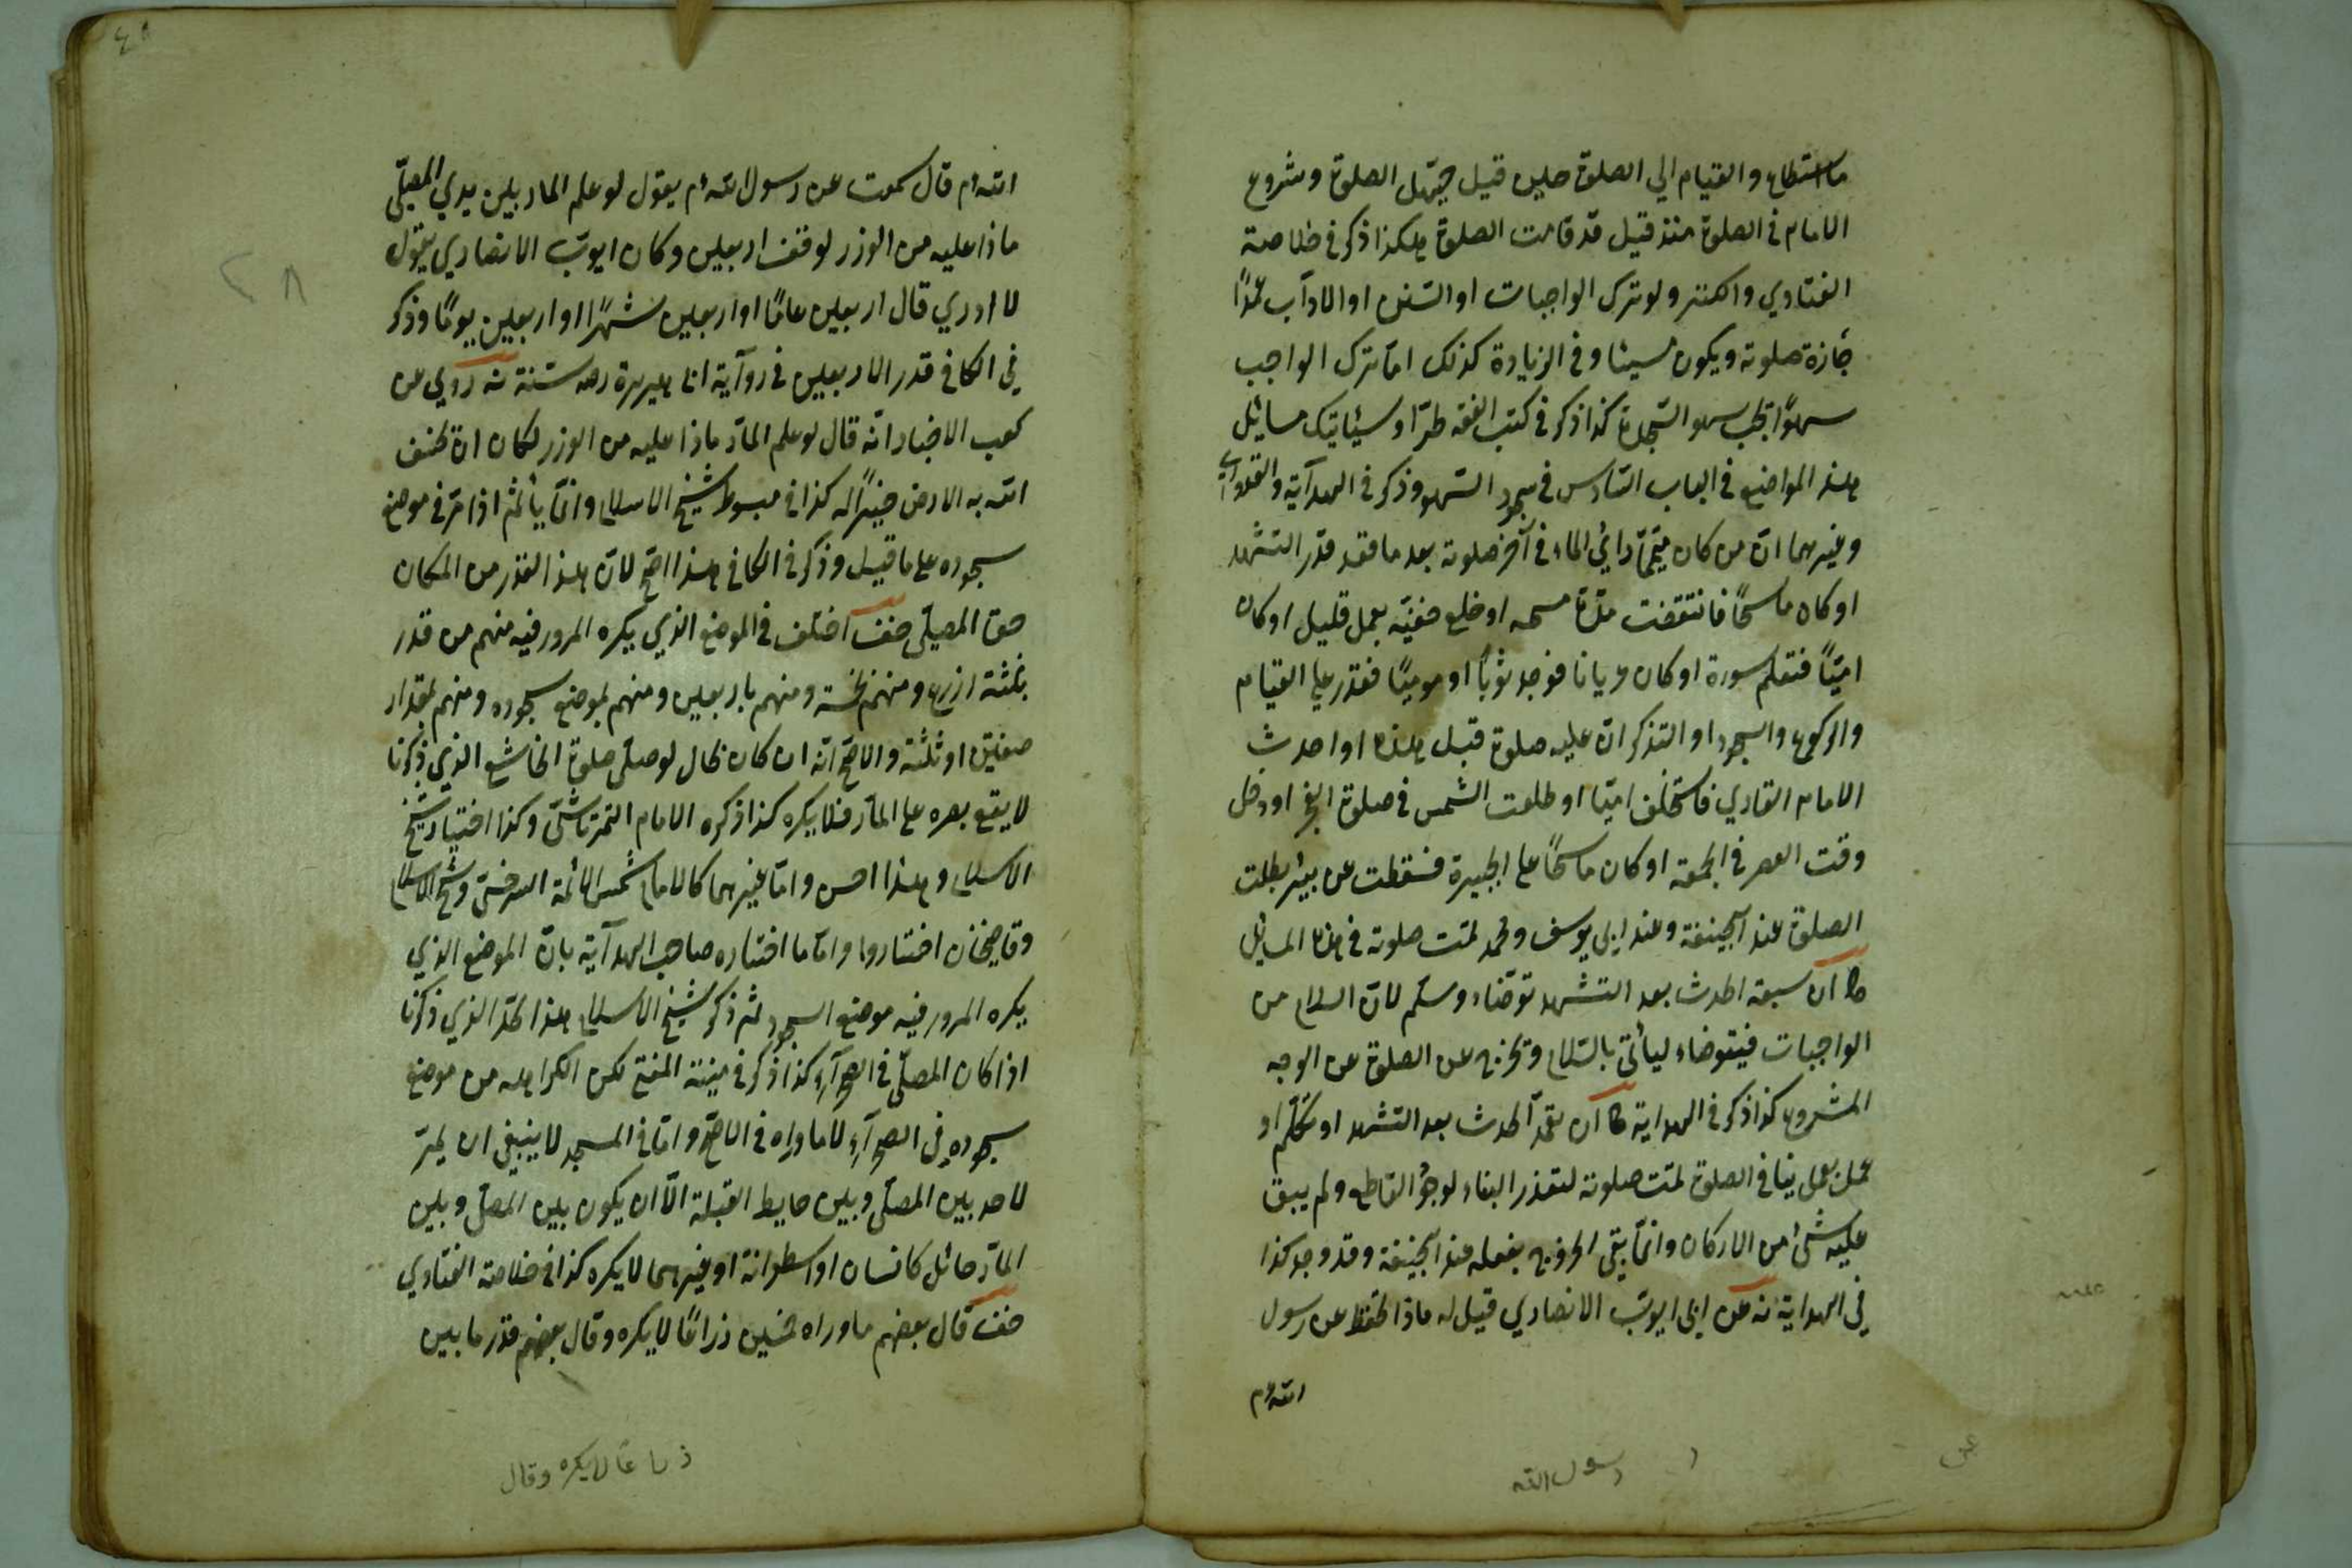 ما استطاع والقيام الي الصلوة حين قيل حيّهل الصلوة وشروع
الامام في الصلوة منذ قيل قد قامت الصلوة هكذا ذكر في خلاصة
الفتاوي والكنز ولو ترك الواجبات او السّنن او الادآب عمدًا
جازة صلوته ويكون مسيئا وفي الزيادة كذلك امّا ترك الواجب
سهوًا يجب سهو السّجدة كذا ذكر في كتب الفقه طرّا وسيأتيك مسائل
هذه المواضع في الباب السّادس في سجود السّهو وذكر في الهدآية والقدوري
وغيرهما انّ من كان متيمّما رائ الماء في آخر صلوته بعد ما قعد قدر التشهد
او كان ماسحًا فانتقضت مدّة مسحه او خلع خفيّه بعمل قليل او كان
اميّاً فتعلم سورة او كان عريانا فوجد ثوبًا او موميًا فقدر علي القيام
والركوع والسجود او التذكر انّ عليه صلوة قبل هذه او احدث
الامام القاري فاستخلف اميّا او طلعت الشمس في صلوة الفجر او دخل
وقت العصر في الجمعة او كان ماسحًا علي الجبيرة فسقطت عن بيرء بطلت
الصلوة عند ابيحنيفة وعند ابي يوسف ومحمد تمت صلوته في هذه المسائل
ان سبقه الحدث بعد التشهد توضّاء وسلم لانّ السلام من
الواجبات فيتوضاء ليأتي بالسّلام وتخرج عن الصلوة عن الوجه
المشروع كذا ذكر في الهداية ان تعمّد الحدث بعد التشهد او تكلّم او
عمل عمل ينافي الصلوة تمت صلوته لتعذر البناء لوجود القاطع ولم يبق
عليه شئ من الاركان وانّما بقي الخروج بفعله عند ابيحنيفة وقد وجد كذا
في الهداية عن ابي ايوب الانصاري قيل له ماذا تحفظ عن رسول
الله م
رسول الله
الله م قال سمعت عن رسول الله م يقول لو علم المار بين يدي المصلّي
ماذا عليه من الوزر لوقف اربعين وكان ايوب الانصاري يقول
لا ادري قال اربعين عامًا او اربعين شهرًا او اربعين يومًا وذكر
في الكافي قدر الاربعين في روآية ابي هريرة رضه سنة روي عن
كعب الاخبار انّه قال لو علم المآر ماذا عليه من الوزر لكان ان تخسف
الله به الارض خيرًا له كذا في مبسوط شيخ الاسلام وانّما يأثم اذا مرّ في موضع
سجوده علي ما قيل وذكر في الكافي هذا اصّح لانّ هذا القدر من المكان
حق المصلّي اختلف في الموضع الذي يكره المرور فيه منهم من قدر
بثلثة ازرع ومنهم بخمسة ومنهم باربعين ومنهم بموضع سجوده ومنهم بمقدار
صفين او ثلثة والاصّح انّه ان كان بحال لو صلّي صلوة الخاشع الذي ذكرنا
لا يقع بصره علي المآر فلا يكره كذا ذكره الامام التمرتاشيّ وكذا اختيار شيخ
الاسلام وهذا احسن وامّا غيرهما كالامام شمس الائمة السرخسيّ وشيخ الاسلام
وقاضيخان اختاروا وامّا ما اختاره صاحب الهدآية بانّ الموضع الذي
يكره المرور فيه موضع السجود ثم ذكر شيخ الاسلام هذا الحدّ الذي ذكرنا
اذا كان المصلّي في الصحرآء كذا ذكر في منية المفتي لكن الكراهه من موضع
سجوده في الصحرآء لا ما وراه في الاصّح وامّا في المسجد لا ينبغي ان يمرّ
لاحد بين المصلّي وبين حايط القبلة الّا ان يكون بين المصلي وبين
المآرّ حائل كانسان او اسطوانة او غيرهما لا يكره كذا في خلاصة الفتاوي
قال بعضهم ما وراه خمسين ذراعًا لا يكره وقال بعضهم قدر ما بين
ذراعًا لا يكره وقال
٤٨
٢٨